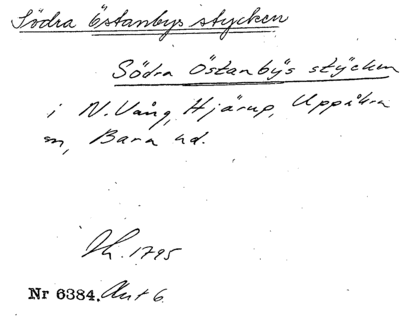 Södra Östanbys stycken
Södra Östanby's stycken
i N. Vång, Hjärup, Uppåkra
sn, Bara hd.
1795
Nr 6384. Akt 6